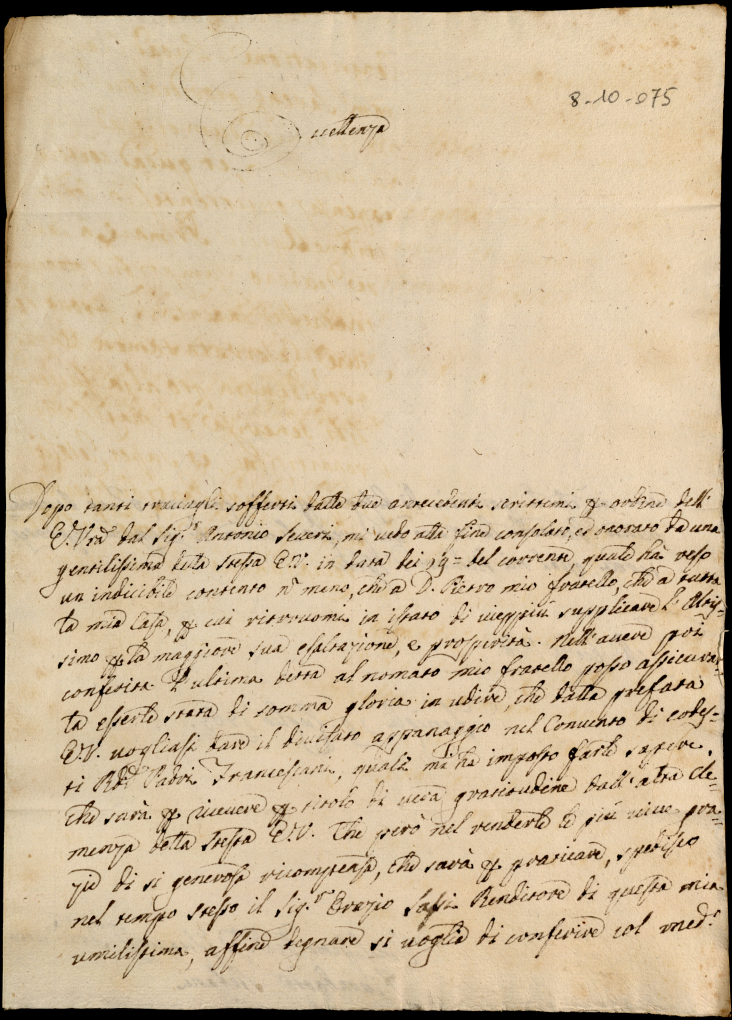 8-10-075
Eccellenza
Dopo tanti travagli sofferti dalle due antecedenti scrittemi p ordine dell'
E.Vrã dal Sig.r Antonio Severi, mi vedo alla fine consolato, ed onorato da una
gentilissima della stessa E.V. in data dei 19= del corrente, quale hà reso
un indicibile contento nõ meno, che a D. Pietro mio fratello, che a tutta
la mia Casa, p cui ritrovomi in istato di vieppiù supplicare l'Altis=
simo p la maggiore sua esaltazione, e prosperità. Nell'avere poi
conferita l'ultima detta al nomato mio fratello posso assicurar
la esserle stata di somma gloria in udire, che dalla prefata
E.V. vogliasi dare il divisato appanaggio nel Convento di codes=
ti Rdi Padri Francescani, quali mi hà imposto farle sapere,
che sarà p ricevere p titolo di vera gratitudine dall'alta cle=
menza della stessa E.V. Che però nel renderle le più vive gra=
zie di si generosa ricompensa, che sarà p praticare, spedisco
nel tempo stesso il Sig.r Orazio Sassi Renditore di questa mia
umilissima, affine degnare si voglia di conferire col med.o